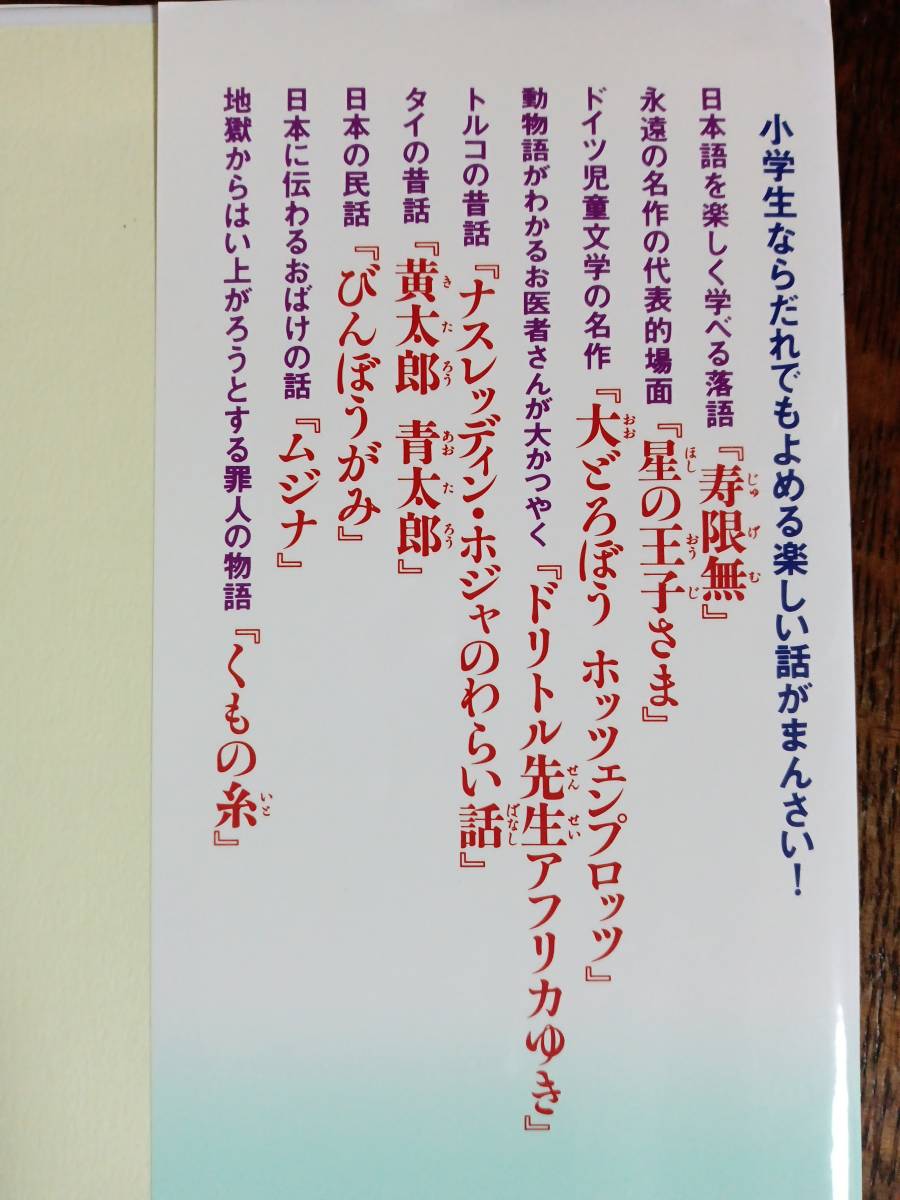 小学生ならだれでもよめる楽しい話がまんさい！
日本語を楽しく学べる落語『寿限無』
永遠の名作の代表的場面『星の王子さま』
ドイツ児童文学の名作『大どろぼう ホッツェンプロッツ』
動物語がわかるお医者さんが大かつやく『ドリトル先生アフリカゆき』
トルコの昔話『ナスレッディン・ホジャのわらい話』
タイの昔話『黄太郎 青太郎』
日本の民話『びんぼうがみ』
日本に伝わるおばけの話『ムジナ』
地獄からはい上がろうとする罪人の物語『くもの糸』